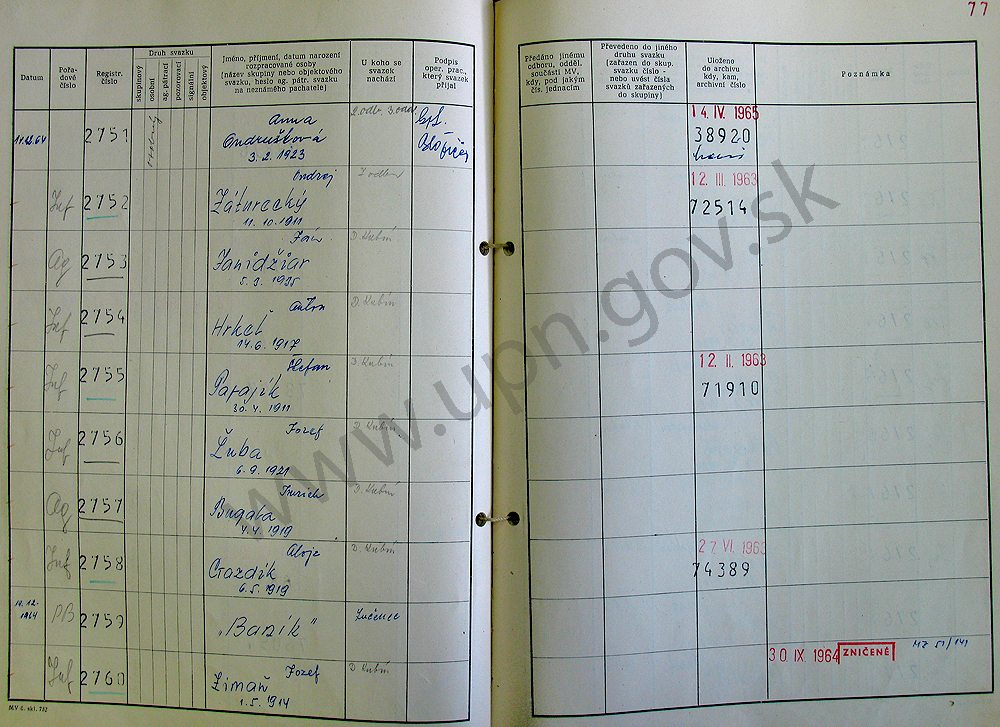 77
Datum
Pořa-
dové
číslo
Registr.
číslo
Druh svazku
skupinový
osobní
ag. pátrací
pozorovací
signální
objektový
Jméno, příjmení, datum narození
rozpracované osoby
(název skupiny nebo objektového
svazku, heslo ag. pátr. svazku
na neznámého pachatele)
U koho se
svazek
nachází
Podpis
oper. prac.,
který svazek
přijal
Předáno jinému
odboru, odděl.
součásti MV,
kdy, pod jakým
čís. jednacím
Převedeno do jiného
druhu svazku
(zařazen do skup.
svazku číslo -
nebo uvést čísla
svazků zařazených
do skupiny)
Uloženo
do archivu
kdy, kam,
archivní číslo
Poznámka
2751
osobný
Anna
Ondrušková
3. 2. 1923
2. odb. 3. odd.
14. IV. 1965
38920
Inf
2752
Ondrej
Záturecký
11. 10. 1911
12. III. 1963
72514
Ag
2753
Ján
Janidžiar
D. Kubín
Inf
2754
Anton
Hrkeľ
14. 6. 1917
D. Kubín
Inf
2755
Štefan
Parajík
30. 4. 1911
D. Kubín
12. II. 1963
71910
Inf
2756
Jozef
Ľuba
6. 9. 1921
D. Kubín
Ag
2757
Imrich
Bugala
4. 4. 1919
D. Kubín
Inf
2758
Alojz
Crazdík
6. 5. 1919
D. Kubín
27. VI. 1963
74389
14. 12.
1964
PB
2759
„Baník"
Lučenec
Inf
2760
Jozef
Zimaň
1. 5. 1914
D. Kubín
30. IX. 1964
ZNIČENÉ
MV č. skl. 782
www.upn.gov.sk